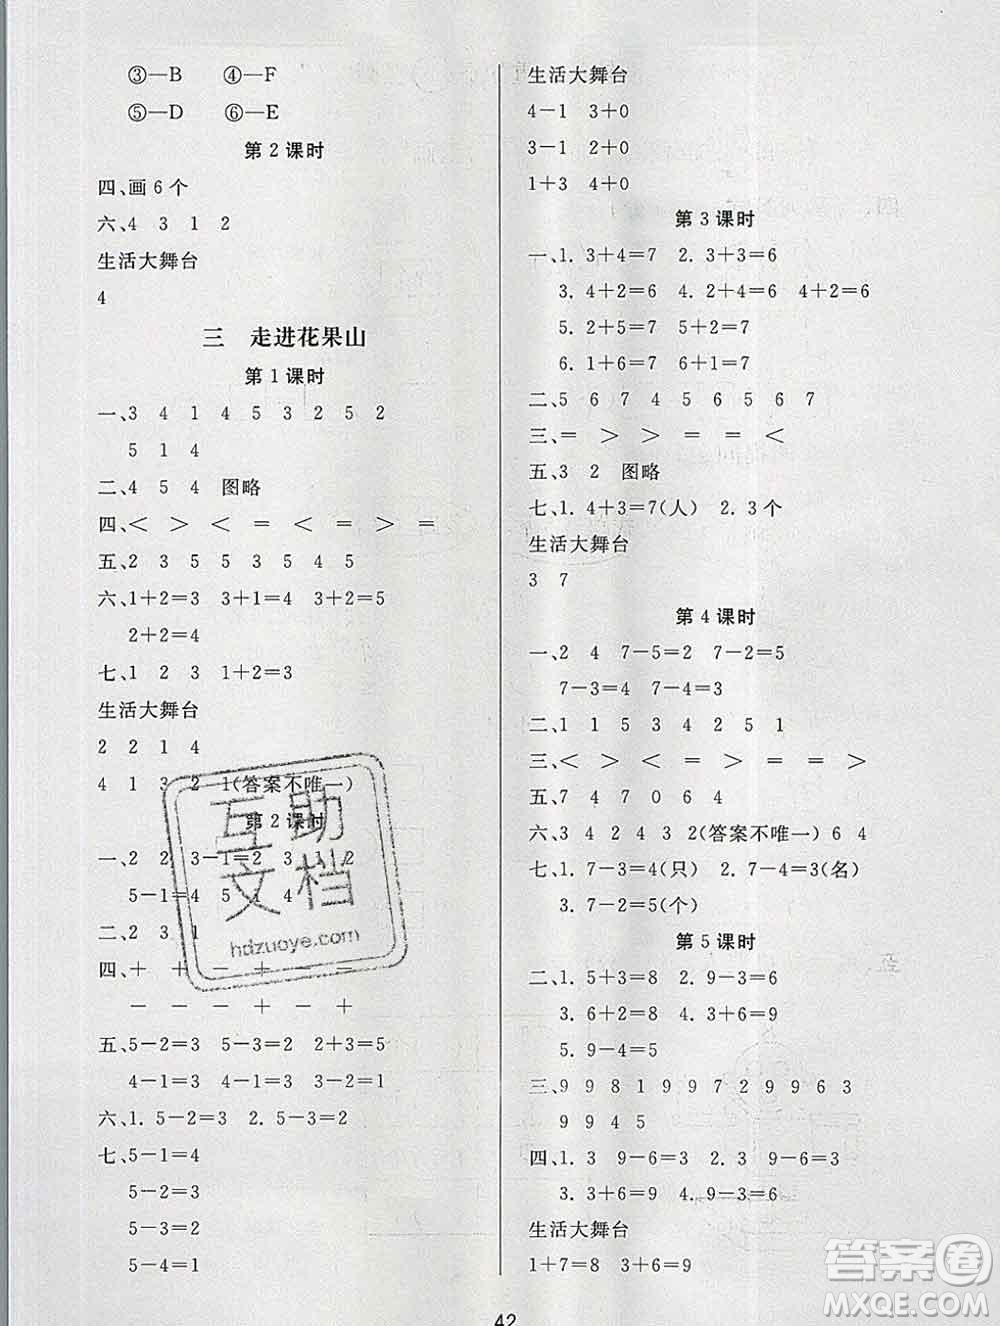 ③—B ④—F
⑤—D ⑥—E
第 2 课时
四、画 6 个
六、4 3 1 2
生活大舞台
4
三 走进花果山
第 1 课时
一、3 4 1 4 5 3 2 5 2
5 1 4
二、4 5 4 图略
四、＜ ＞ ＜ ＝ ＜ ＝ ＞ ＝
五、2 3 5 5 3 5 4 5
六、1＋2＝3 3＋1＝4 3＋2＝5
2＋2＝4
七、1 2 3 1＋2＝3
生活大舞台
2 2 1 4
4 1 3 2 1(答案不唯一)
第 2 课时
一、2 2 3－1＝2 3 1 2
5－1＝4 5 1 4
二、2 3 1
四、＋ ＋ － ＋ ＋ ＋
－ － － ＋ － ＋
五、5－2＝3 5－3＝2 2＋3＝5
4－1＝3 4－3＝1 3＋1＝4
六、1. 5－2＝3 2. 5－3＝2
七、5－1＝4
5－2＝3
5－3＝2
5－4＝1
生活大舞台
4－1 3＋0
3－1 2＋0
1＋3 4＋0
第 3 课时
一、1. 3＋4＝7 2. 3＋3＝6
3. 4＋2＝6 4. 2＋4＝6 4＋2＝6
5. 2＋5＝7 5＋2＝7
6. 1＋6＝7 6＋1＝7
二、5 6 7 4 5 6 5 6 7
三、＝ ＞ ＞ ＝ ＝ ＜
五、3 2 图略
七、1. 4＋3＝7(人) 2. 3 个
生活大舞台
3 7
第 4 课时
一、2 4 7－5＝2 7－2＝5
7－3＝4 7－4＝3
二、1 1 5 3 4 2 5 1
三、＜ ＞ ＜ ＝ ＞ ＝ ＝ ＞
五、7 4 7 0 6 4
六、3 4 2 4 3 2(答案不唯一) 6 4
七、1. 7－3＝4(只) 2. 7－4＝3(名)
3. 7－2＝5(个)
第 5 课时
二、1. 5＋3＝8 2. 9－3＝6
3. 6＋2＝8 4. 3＋6＝9
5. 9－4＝5
三、9 9 8 1 9 9 7 2 9 9 6 3
9 9 4 5
四、1. 3 9－6＝3 2. 3 9－6＝3
3. 3＋6＝9 4. 9－3＝6
生活大舞台
1＋7＝8 3＋6＝9
42
互助
文档
hdzuoye.com
答案圈
MXQE.COM